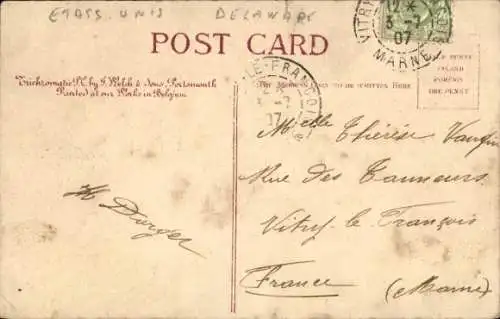 ETATS. UNIS DELAWARE
POST CARD
VITRY
12
3 -7
07
MARNE
LE-FRANÇOIS
3 -7
07
Trichromatic P.C. by J. Welch & Sons, Portsmouth
Printed at our Works in Belgium
THE ADDRESS ONLY TO BE WRITTEN HERE
INLAND
FOREIGN
ONE PENNY
Melle Thérèse Vauquin
Rue des Tanneurs
Vitry le François
France (Marne)
H Dorget